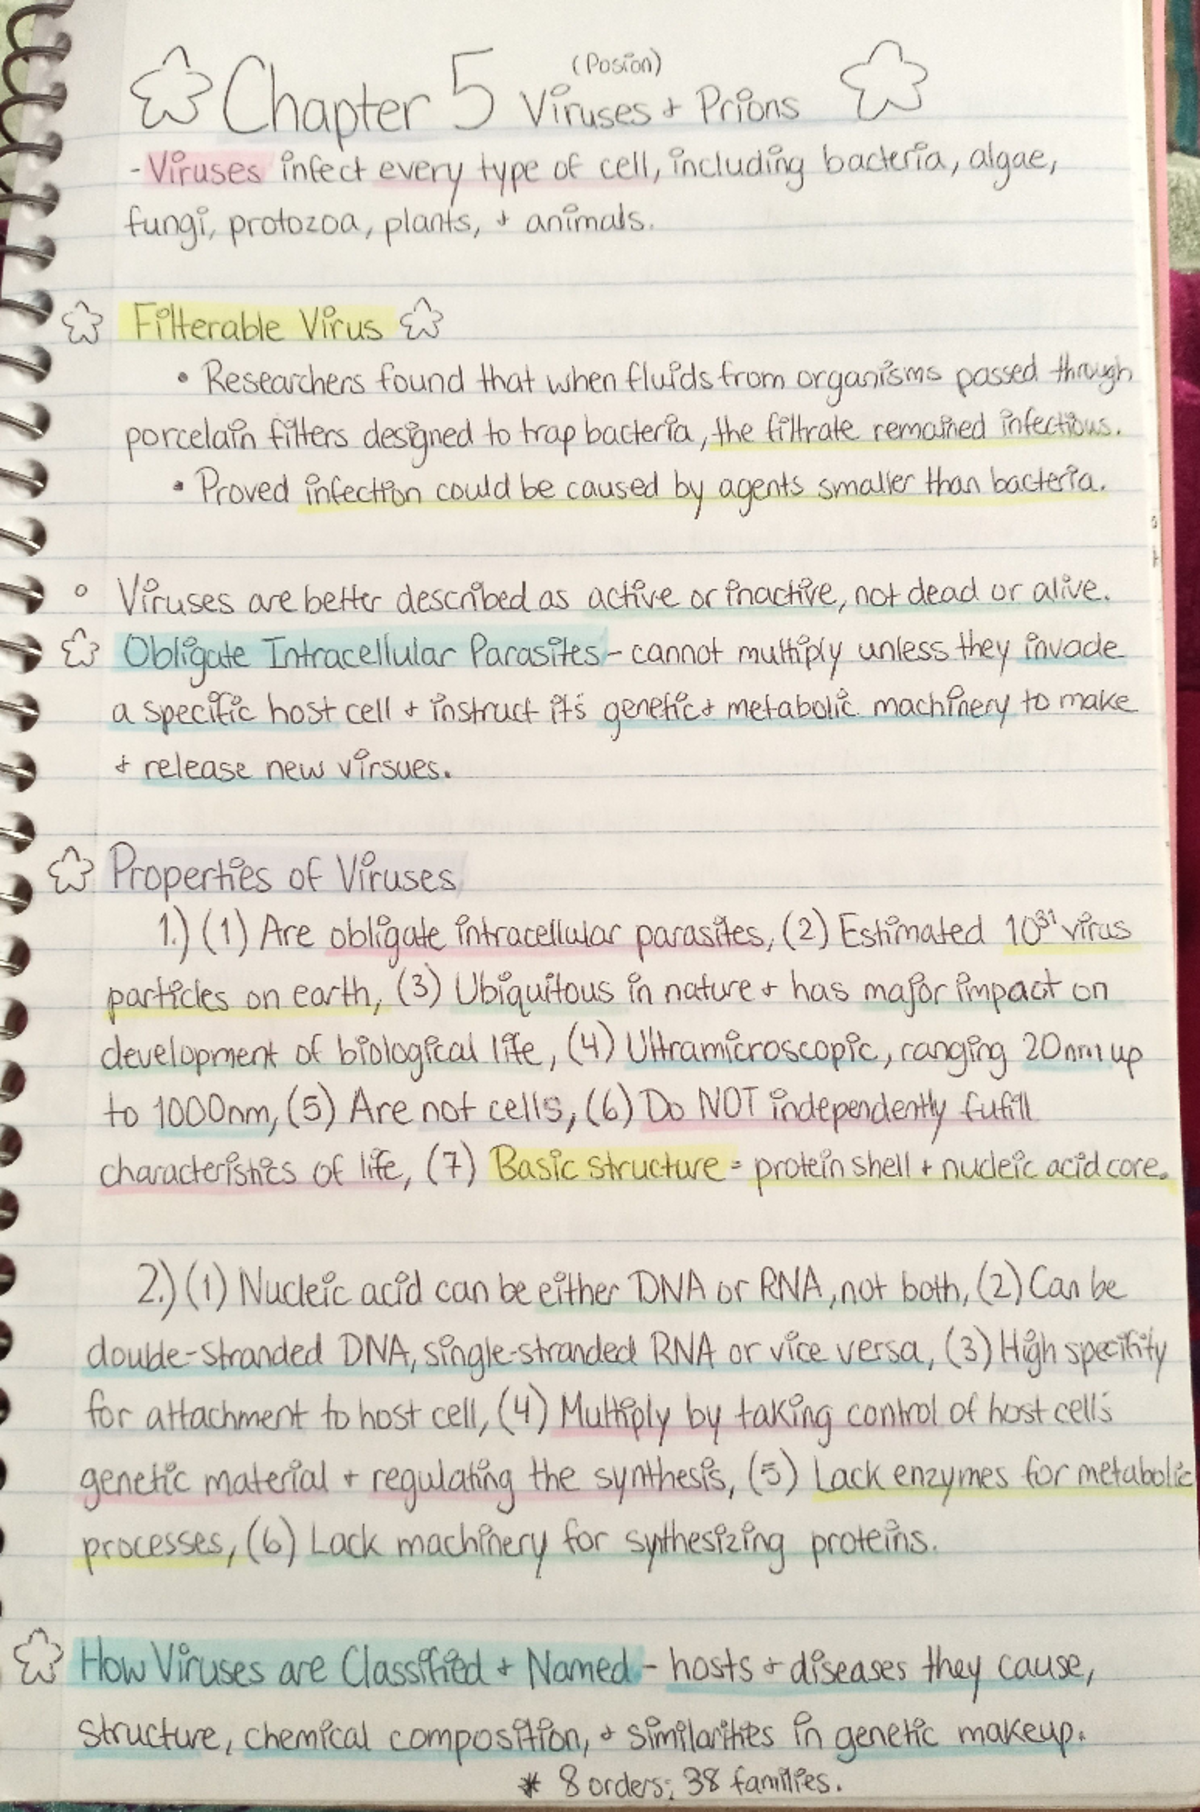 (Posion)
Chapter 5 Viruses + Prions
- Viruses infect every type of cell, including bacteria, algae,
fungi, protozoa, plants, + animals.
Filterable Virus
• Researchers found that when fluids from organisms passed through
porcelain filters designed to trap bacteria, the filtrate remained infectious.
• Proved infection could be caused by agents smaller than bacteria.
° Viruses are better described as active or inactive, not dead or alive.
Obligate Intracellular Parasites - cannot multiply unless they invade
a specific host cell + instruct it's genetic + metabolic machinery to make
+ release new virsues.
Properties of Viruses
1.) (1) Are obligate intracellular parasites, (2) Estimated 10³¹ virus
particles on earth, (3) Ubiquitous in nature + has major impact on
development of biological life, (4) Ultramicroscopic, ranging 20nm up
to 1000nm, (5) Are not cells, (6) Do NOT independently fufill
characteristics of life, (7) Basic structure = protein shell + nucleic acid core.
2.) (1) Nucleic acid can be either DNA or RNA, not both, (2) Can be
double-stranded DNA, single-stranded RNA or vice versa, (3) High specifity
for attachment to host cell, (4) Multiply by taking control of host cell's
genetic material + regulating the synthesis, (5) Lack enzymes for metabolic
processes, (6) Lack machinery for sythesizing proteins.
How Viruses are Classified + Named - hosts + diseases they cause,
structure, chemical composition, + similarities in genetic makeup.
* 8 orders; 38 families.